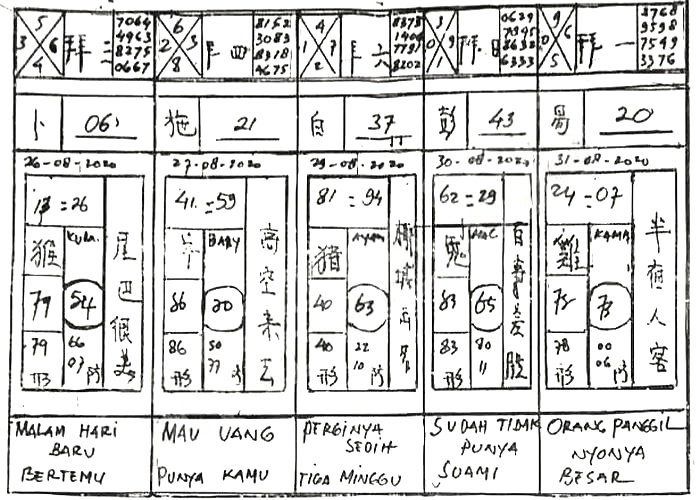 5
3 6
4
拜二
7064
4463
8275
0667
6
2 3
8
拜四
8152
3083
8918
4675
4
1 7
2
拜六
8378
1406
7791
8202
3
0 9
1
拜日
0629
7945
8632
6333
9
0 6
5
拜一
8768
9598
7549
3376
卜
06
施
21
自
37
彭
43
20
26-08-2020
27-08-2020
29-08-2020
30-08-2020
31-08-2020
13=26
猴
KUDA
79
54
79
形
66
07
尾巴很美
41=59
羊
BABY
86
20
86
形
50
77
高空来去
81=94
猪
AYAM
40
63
40
形
22
10
62=29
兔
MAC
83
65
83
形
80
11
24=07
雞
KAMB
78
73
78
形
00
06
半夜人客
MALAM HARI
BARU
BERTEMU
MAU UANG
PUNYA KAMU
PERGINYA
SEDIH
TIGA MINGGU
SUDAH TIDAK
PUNYA
SUAMI
ORANG PANGGIL
NYONYA
BESAR